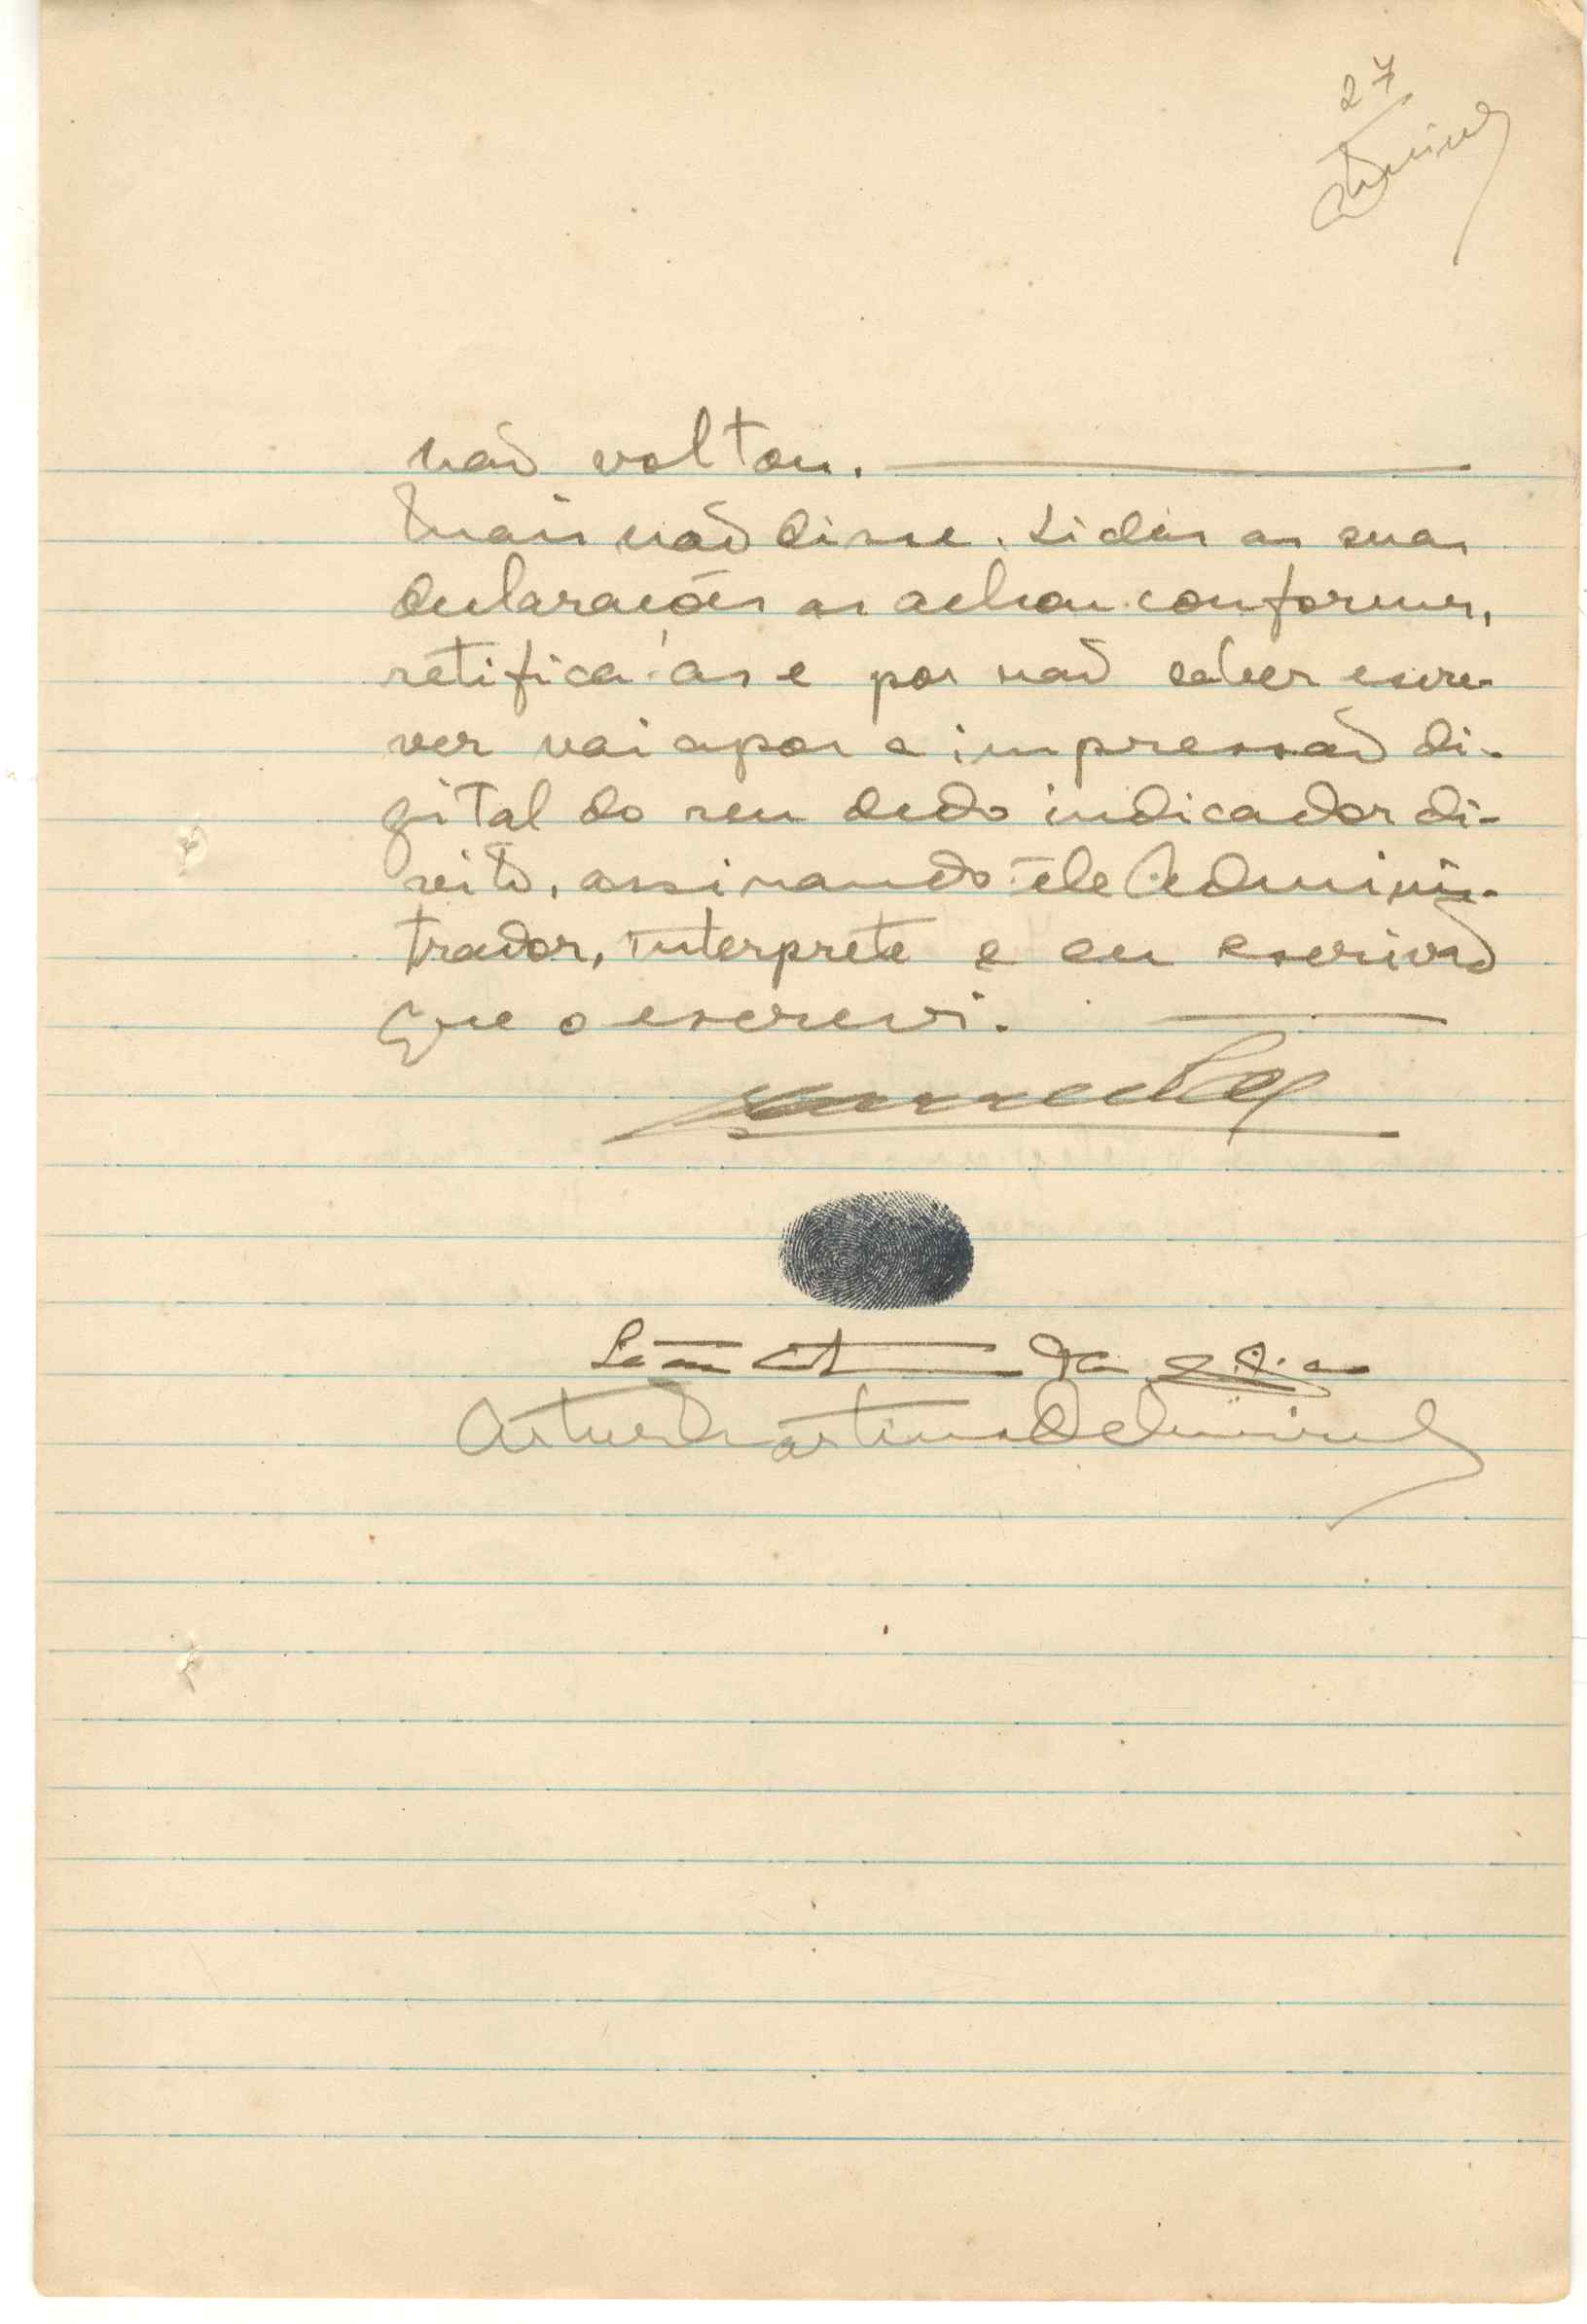 27
não voltou.
Mais não disse. Lidas as suas
declarações as achou conformes,
retifica-as e por não saber escre-
ver vai apor a impressão di-
gital do seu dedo indicador di-
reito, assinando êle Adminis-
trador, intérprete e eu escrivão
que o escrevi.
da
Artur Martins de